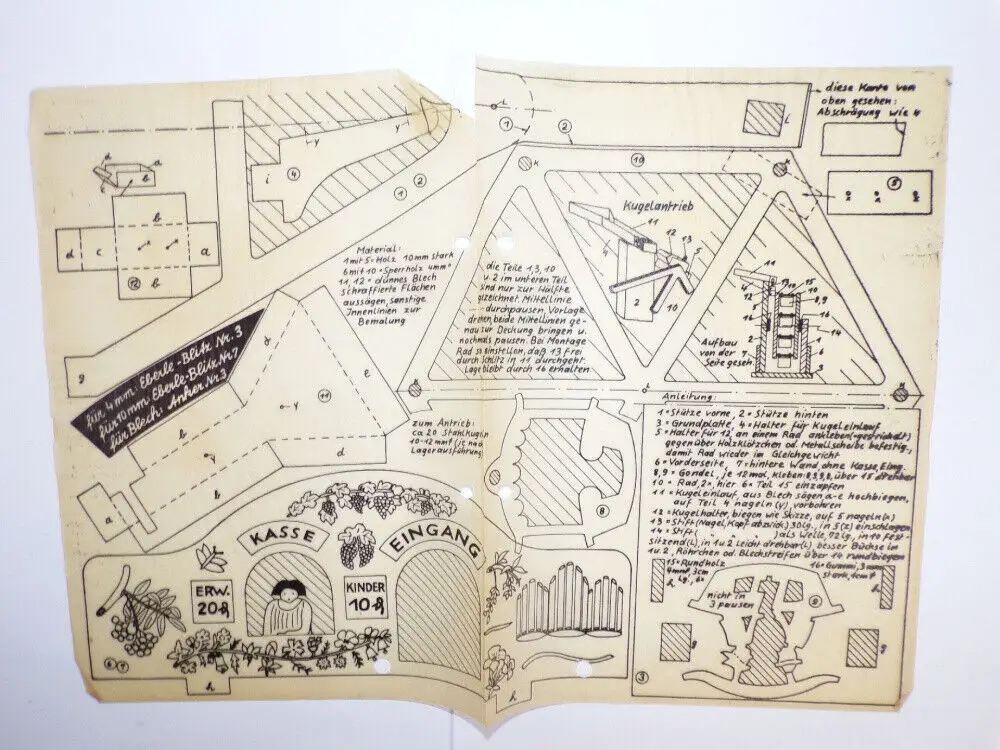 diese Kante von
oben gesehen:
Abschrägung wie 4
Kugelantrieb
Material:
1 mit 5 = Holz 10mm stark
6 mit 10 = Sperrholz 4mm"
11, 12 = dünnes Blech
schraffierte Flächen
aussägen, sonstige
Innenlinien zur
Bemalung
die Teile 1, 3, 10
u. 2 im unteren Teil
sind nur zur Hälfte
gezeichnet. Mittellinie
durchpausen, Vorlage
drehen, beide Mittellinien ge-
nau zur Deckung bringen u.
nochmals pausen. Bei Montage
Rad so einstellen, daß 13 frei
durch Schlitz in 11 durchgeht.
Lage bleibt durch 16 erhalten.
Aufbau
von der
Seite geseh.
für 4mm: Eberle-Blitz Nr. 3
für 10mm: Eberle-Blitz Nr. 7
für Blech: Anker Nr 3
zum Antrieb:
ca 20 Stahlkugeln
10-12 mm ∅ (je nach
Lagerausführung)
Anleitung:
1 = Stütze vorne, 2 = Stütze hinten
3 = Grundplatte, 4 = Halter für Kugeleinlauf
5 = Halter für 12, an einem Rad ankleben (gestrichelt)
gegenüber Holzklötzchen od. Metallscheibe befestig.,
damit Rad wieder im Gleichgewicht
6 = Vorderseite, 7 = hintere Wand, ohne Kasse, Eing.
8, 9 = Gondel, je 12 mal, kleben: 8, 9, 9, 8, über 15 drehbar
10 = Rad, 2x, hier 6x Teil 15 einzapfen
11 = Kugeleinlauf, aus Blech sägen, a-e hochbiegen,
auf Teil 4 nageln (y), vorbohren
12 = Kugelhalter, biegen wie Skizze, auf 5 nageln (x)
13 = Stift (Nagel, Kopf abzwick.) 30 lg., in 5 (z) einschlagen
14 = Stift ( " " " ) als Welle, 72 lg., in 10 fest-
sitzend (L), in 1 u. 2 leicht drehbar (L), besser Büchse in
1 u. 2, Röhrchen od. Blechstreifen über 14 rundbiegen
15 = Rundholz
4mm ∅, 3cm
lg., 6x
16 = Gummi, 3mm
stark, 1cm ∅
KASSE
EINGANG
ERW.
20 ₰
KINDER
10 ₰
nicht in
3 pausen